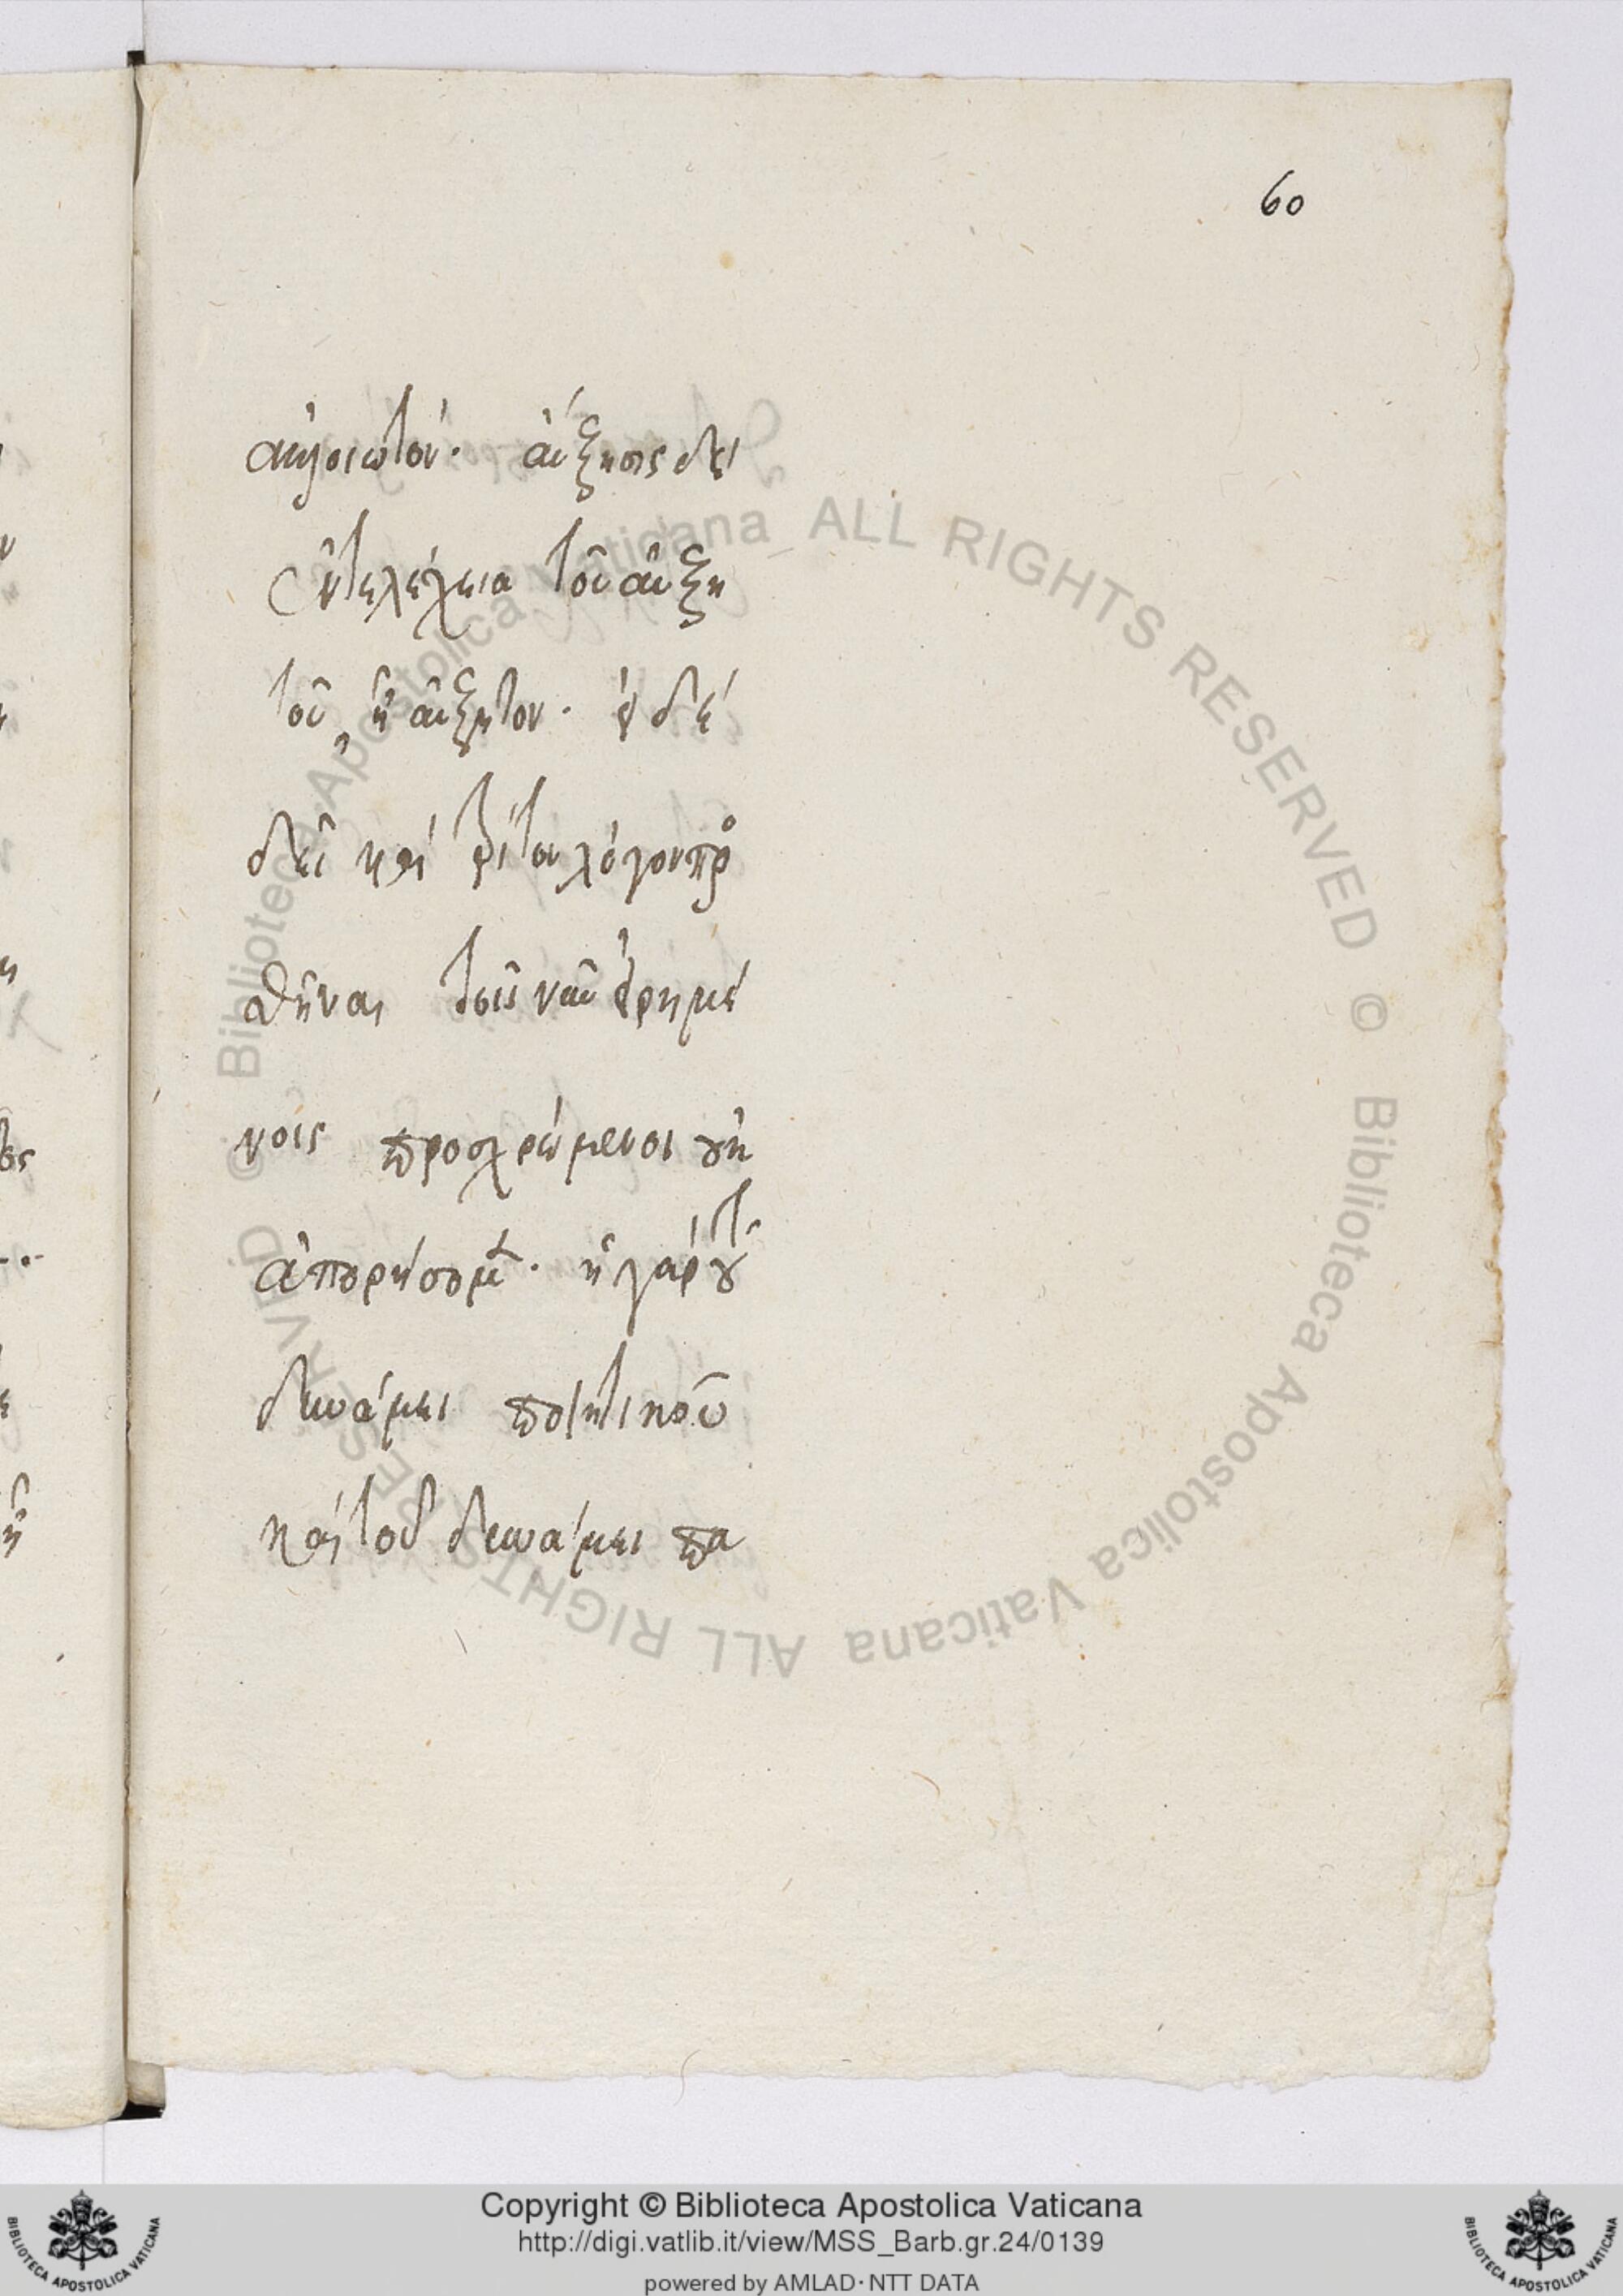 60
ἀλλοιωτόν· αὔξησις δὲ
ἐντελέχεια τοῦ αὐξη
τοῦ ᾗ αὐξητόν· εἰ δὲ
δεῖ καὶ ἐπὶ τὸν λόγον προ
θῆναι τοῖς νῦν εἰρημέ
νοις προσχρώμενοι οὐκ
ἀπορήσομεν· ἡ γὰρ τοῦ
δυνάμει ποιητικοῦ
καὶ τοῦ δυνάμει πα
© Biblioteca Apostolica Vaticana ALL RIGHTS RESERVED © Biblioteca Apostolica Vaticana ALL RIGHTS RESERVED
Copyright © Biblioteca Apostolica Vaticana
http://digi.vatlib.it/view/MSS_Barb.gr.24/0139
powered by AMLAD·NTT DATA
BIBLIOTECA APOSTOLICA VATICANA
BIBLIOTECA APOSTOLICA VATICANA